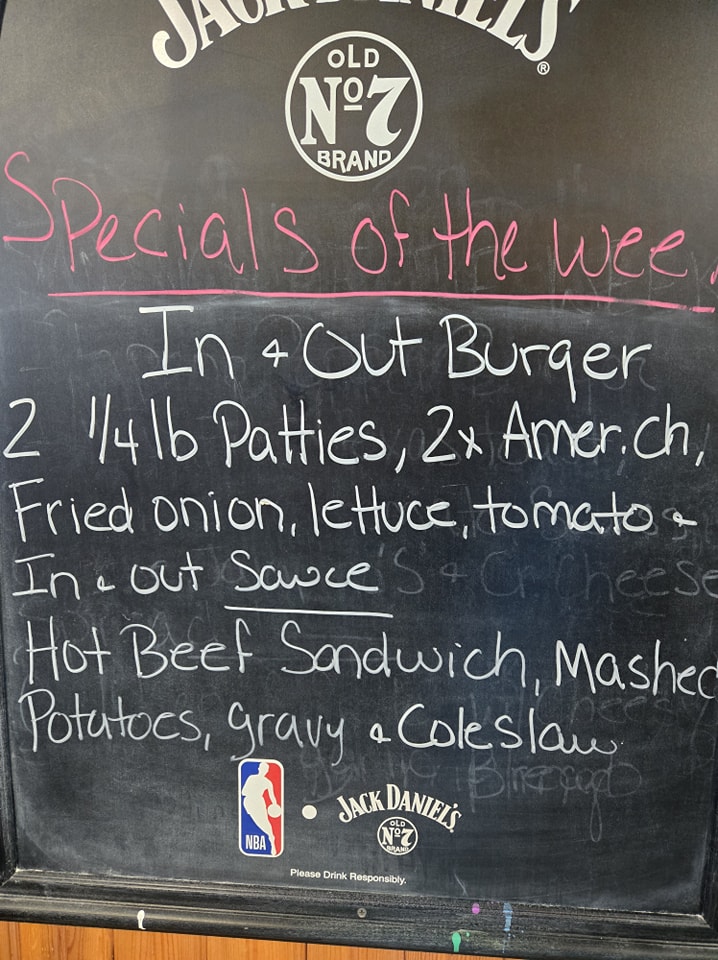 JACK DANIEL'S
®
OLD
Nº7
BRAND
Specials of the wee
In & Out Burger
2 1/4 lb Patties, 2x Amer.Ch,
Fried onion, lettuce, tomato &
In & out Sauce
Hot Beef Sandwich, Mashed
Potatoes, gravy & Coleslaw
NBA
JACK DANIEL'S
OLD
Nº7
BRAND
Please Drink Responsibly.